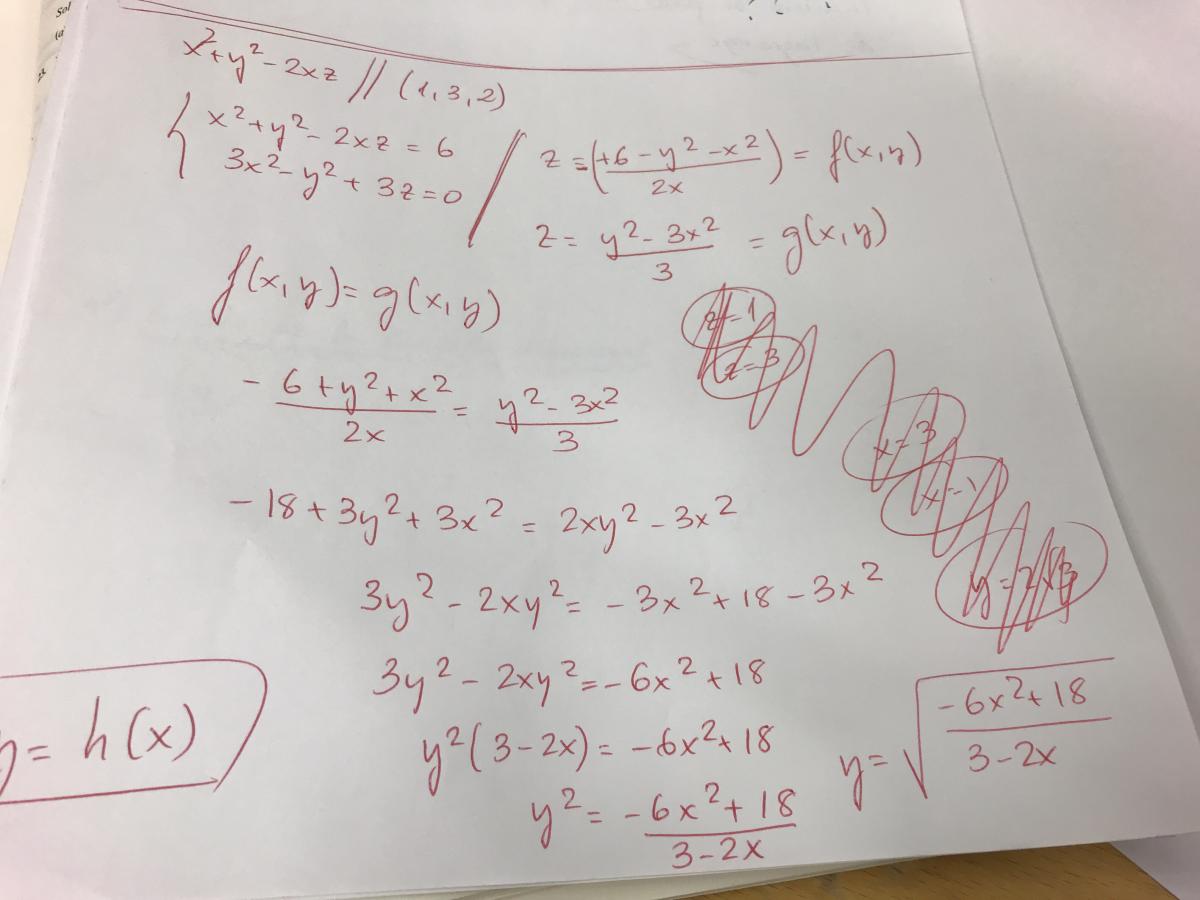 Sol
(a
x²+y²-2xz // (1,3,2)
{ x²+y²-2xz = 6
3x²-y²+3z=0
z = (+6-y²-x² / 2x) = f(x,y)
z = y²-3x² / 3 = g(x,y)
f(x,y) = g(x,y)
z=1
z=3
- 6+y²+x² / 2x = y²-3x² / 3
x=3
x=1
-18+3y²+3x² = 2xy²-3x²
3y²-2xy² = -3x²+18-3x²
3y²-2xy² = -6x²+18
y²(3-2x) = -6x²+18
y = √(-6x²+18 / 3-2x)
= h(x)
y² = -6x²+18 / 3-2x